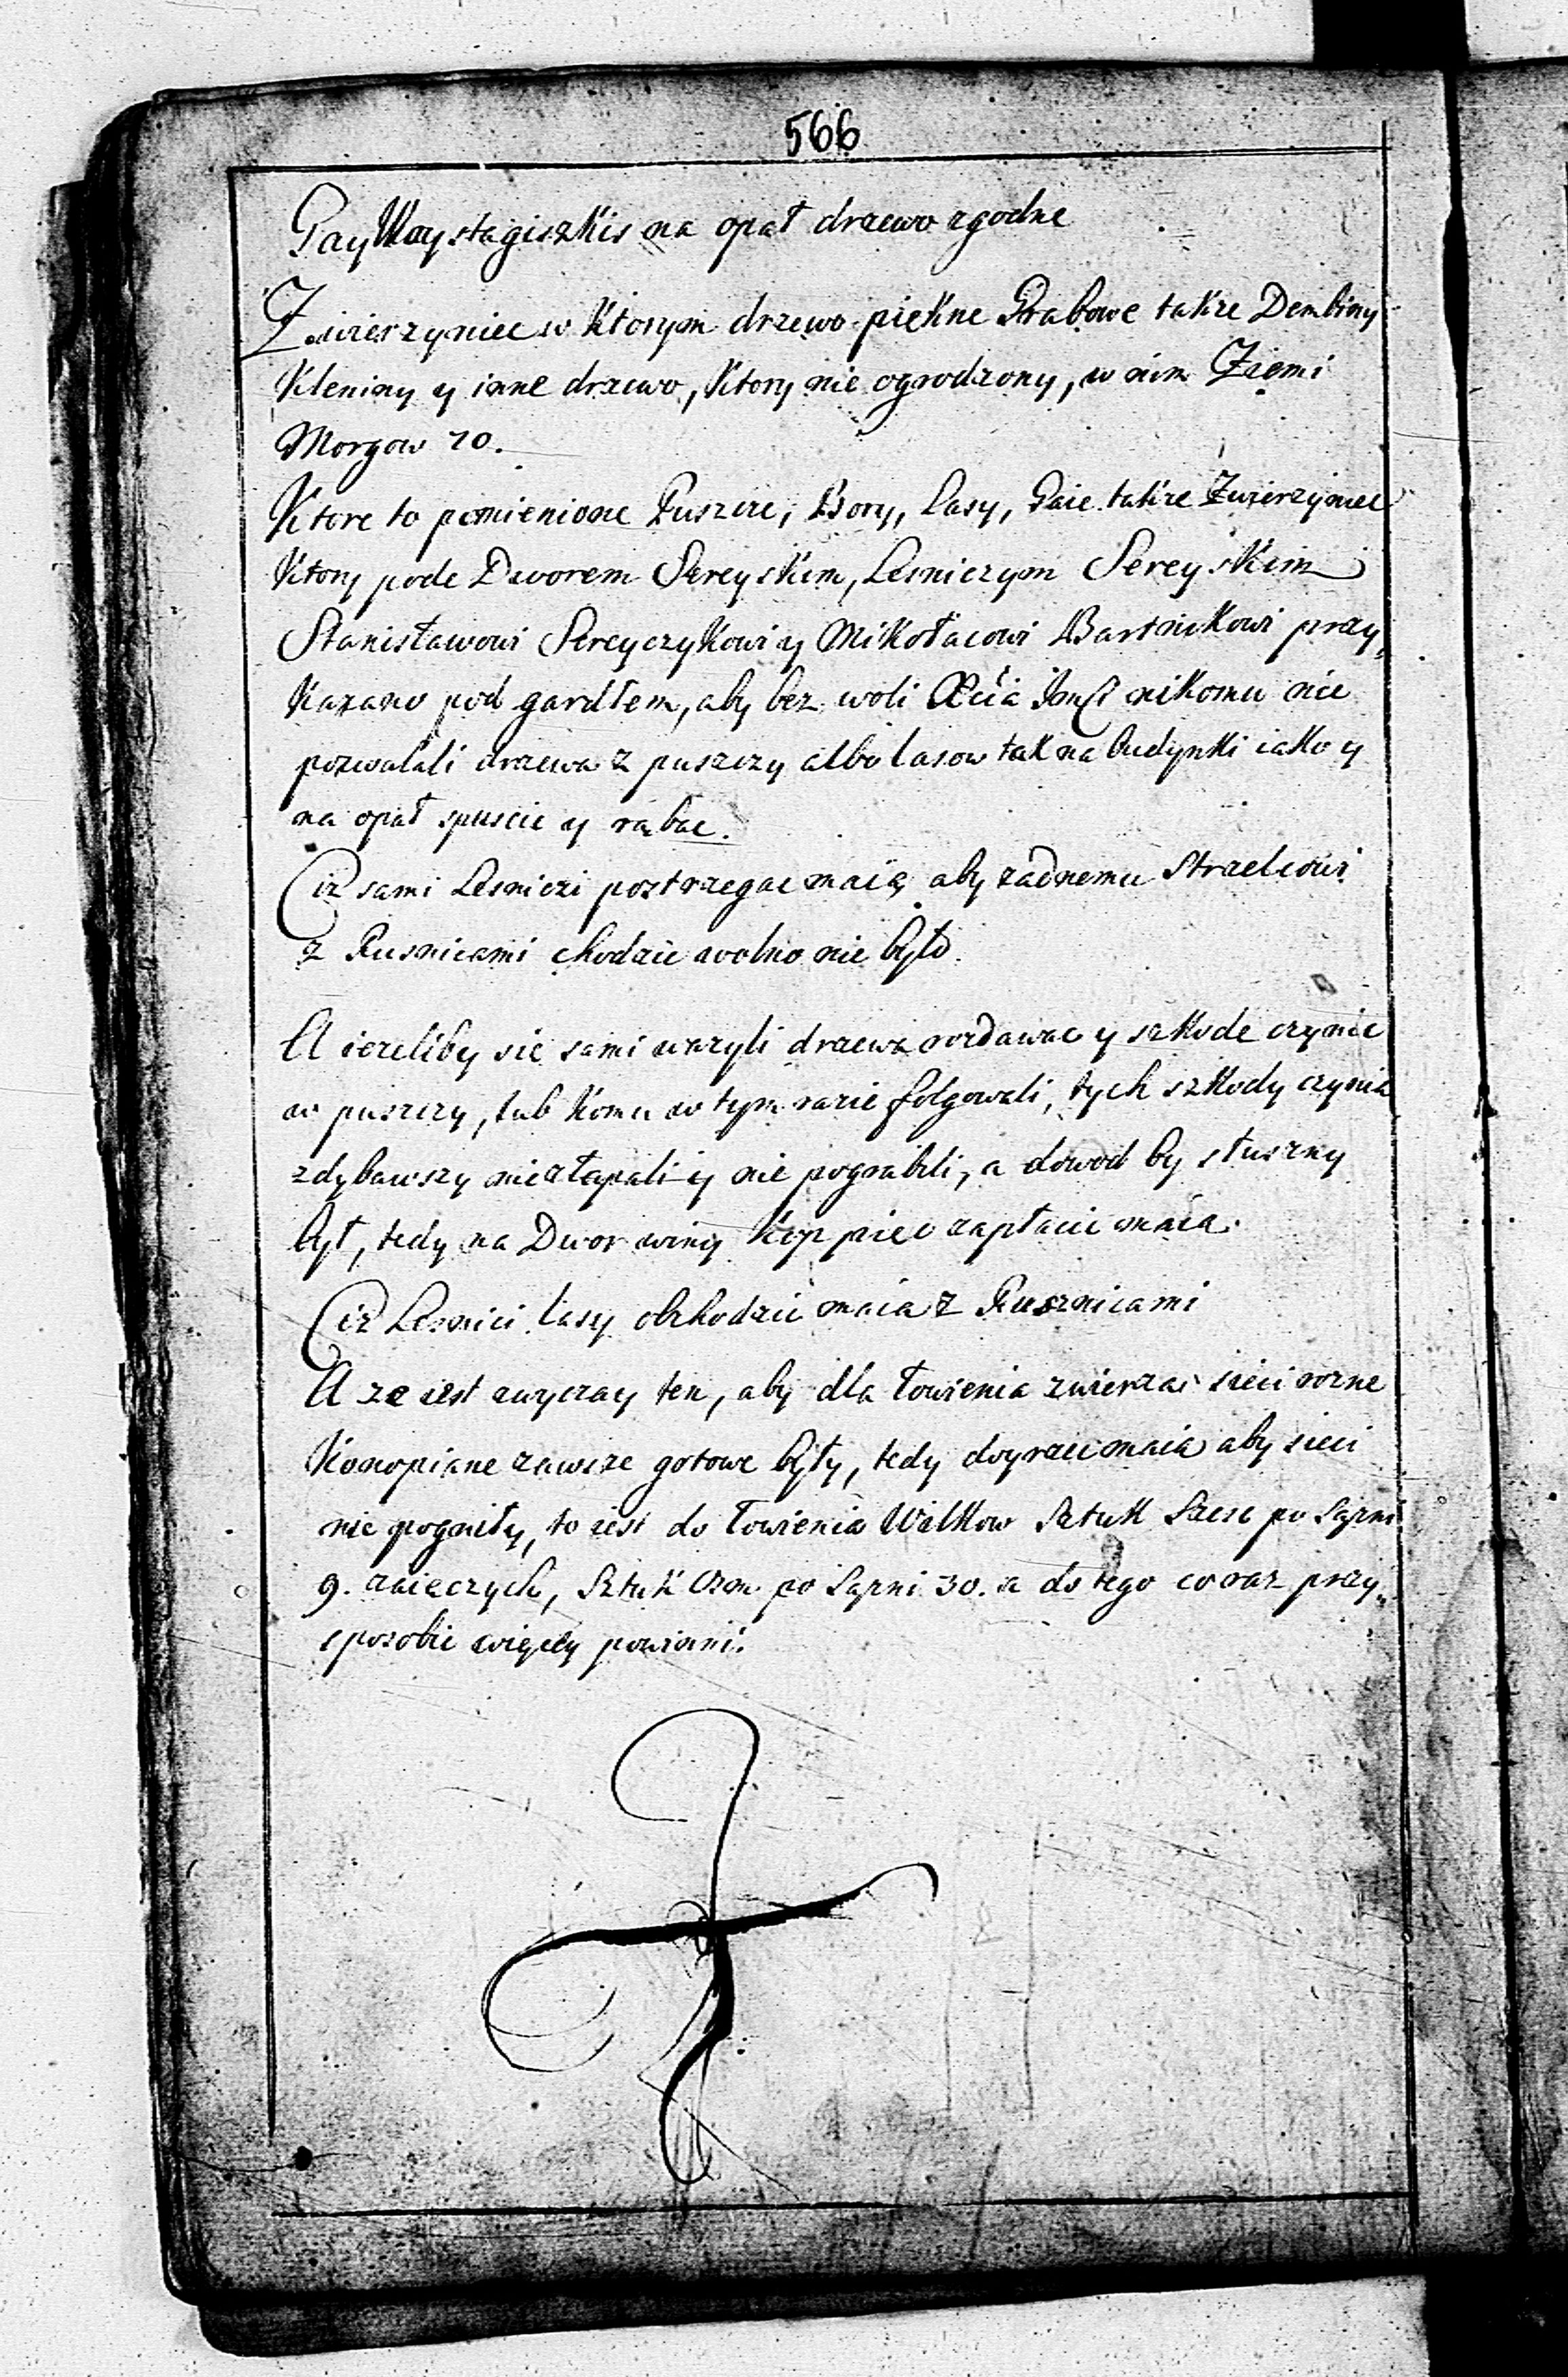 566
Gay Waystagiszkis na opał drzewo zgodne
Zwierzyniec w Ktorym drzewo piękne Grabowe takze Dembiny
Kleniny y inne drzewo, Ktory nie ogrodzony, w nim Ziemi
Morgow 10.
Ktore to pomienione Puszcze, Bory, Lasy, Gaie takze Zwierzyniec
Ktory pode Dworem Sereyskim, Lesniczym Sereyskim
Stanisławowi Sereyczykowi y Mikołaiowi Bartnikowi przy„
Kazano pod gardłem, aby bez woli Xcia Jmci nikomu nie
pozwalali drzewa z puszczy albo lasow tak na budynki iako y
na opał spuscic y rąbac.
Ciz sami Lesniczi postrzegac maią aby zadnemu Strzelcowi
z Rusnicami chodzic wolno nie było.
A iezeliby się sami wazyli drzewa rozdawac y szkode czynic
w puszczy, lub Komu w tym razie folgowali, tych szkody czynia
zdybawszy nie złapali y nie pograbili, a dowod by słuszny
był, tedy na Dwor winy Kop pięc zapłacic maia.
Ciz Lesnici lasy obchodzic maia z Rusznicami
A ze iest zwyczay ten, aby dla łowienia zwierza sieci rozne
Konopiane zawsze gotowe były, tedy doyrzec maia aby sieci
nie pogniły, to iest do łowienia Wilkow Sztuk Szesc po Sązni
9. zaięczych, Sztuk Osm po Sązni 30. a do tego coraz przy„
sposobic więcey powinni.